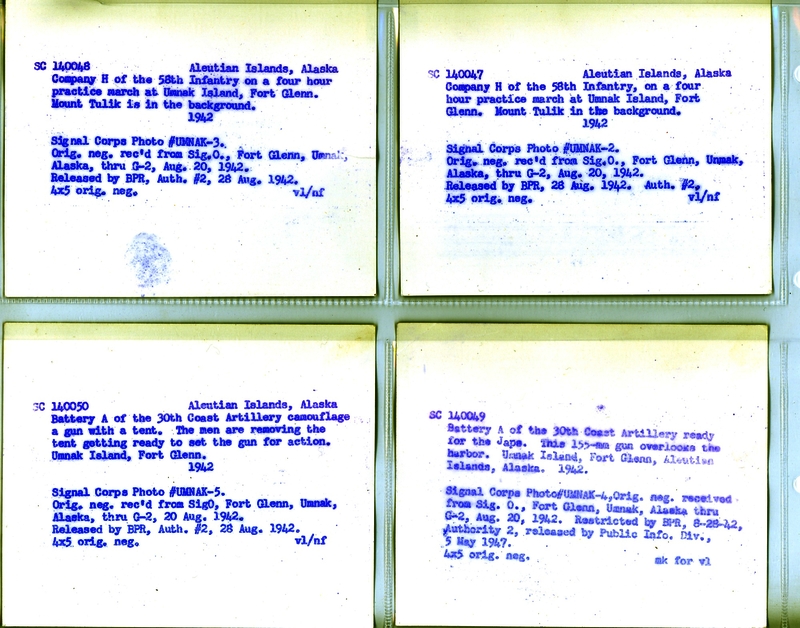 SC 140048 Aleutian Islands, Alaska
Company H of the 58th Infantry on a four hour
practice march at Umnak Island, Fort Glenn.
Mount Tulik is in the background.
1942
Signal Corps Photo #UMNAK-3.
Orig. neg. rec'd from Sig.O., Fort Glenn, Umnak,
Alaska, thru G-2, Aug. 20, 1942.
Released by BPR, Auth. #2, 28 Aug. 1942.
4x5 orig. neg. vl/nf
SC 140047 Aleutian Islands, Alaska
Company H of the 58th Infantry, on a four
hour practice march at Umnak Island, Fort
Glenn. Mount Tulik in the background.
1942
Signal Corps Photo #UMNAK-2.
Orig. neg. rec'd from Sig.O., Fort Glenn, Umnak,
Alaska, thru G-2, Aug. 20, 1942.
Released by BPR, 28 Aug. 1942. Auth. #2.
4x5 orig. neg. vl/nf
SC 140050 Aleutian Islands, Alaska
Battery A of the 30th Coast Artillery camouflage
a gun with a tent. The men are removing the
tent getting ready to set the gun for action.
Umnak Island, Fort Glenn.
1942
Signal Corps Photo #UMNAK-5.
Orig. neg. rec'd from SigO, Fort Glenn, Umnak,
Alaska, thru G-2, 20 Aug. 1942.
Released by BPR, Auth. #2, 28 Aug. 1942.
4x5 orig. neg. vl/nf
SC 140049
Battery A of the 30th Coast Artillery ready
for the Japs. This 155-mm gun overlooks the
harbor. Umnak Island, Fort Glenn, Aleutian
Islands, Alaska. 1942.
Signal Corps Photo#UMNAK-4,Orig. neg. received
from Sig. O., Fort Glenn, Umnak, Alaska thru
G-2, Aug. 20, 1942. Restricted by BPR, 8-28-42,
Authority 2, released by Public Info. Div.,
5 May 1947.
4x5 orig. neg. mk for vl